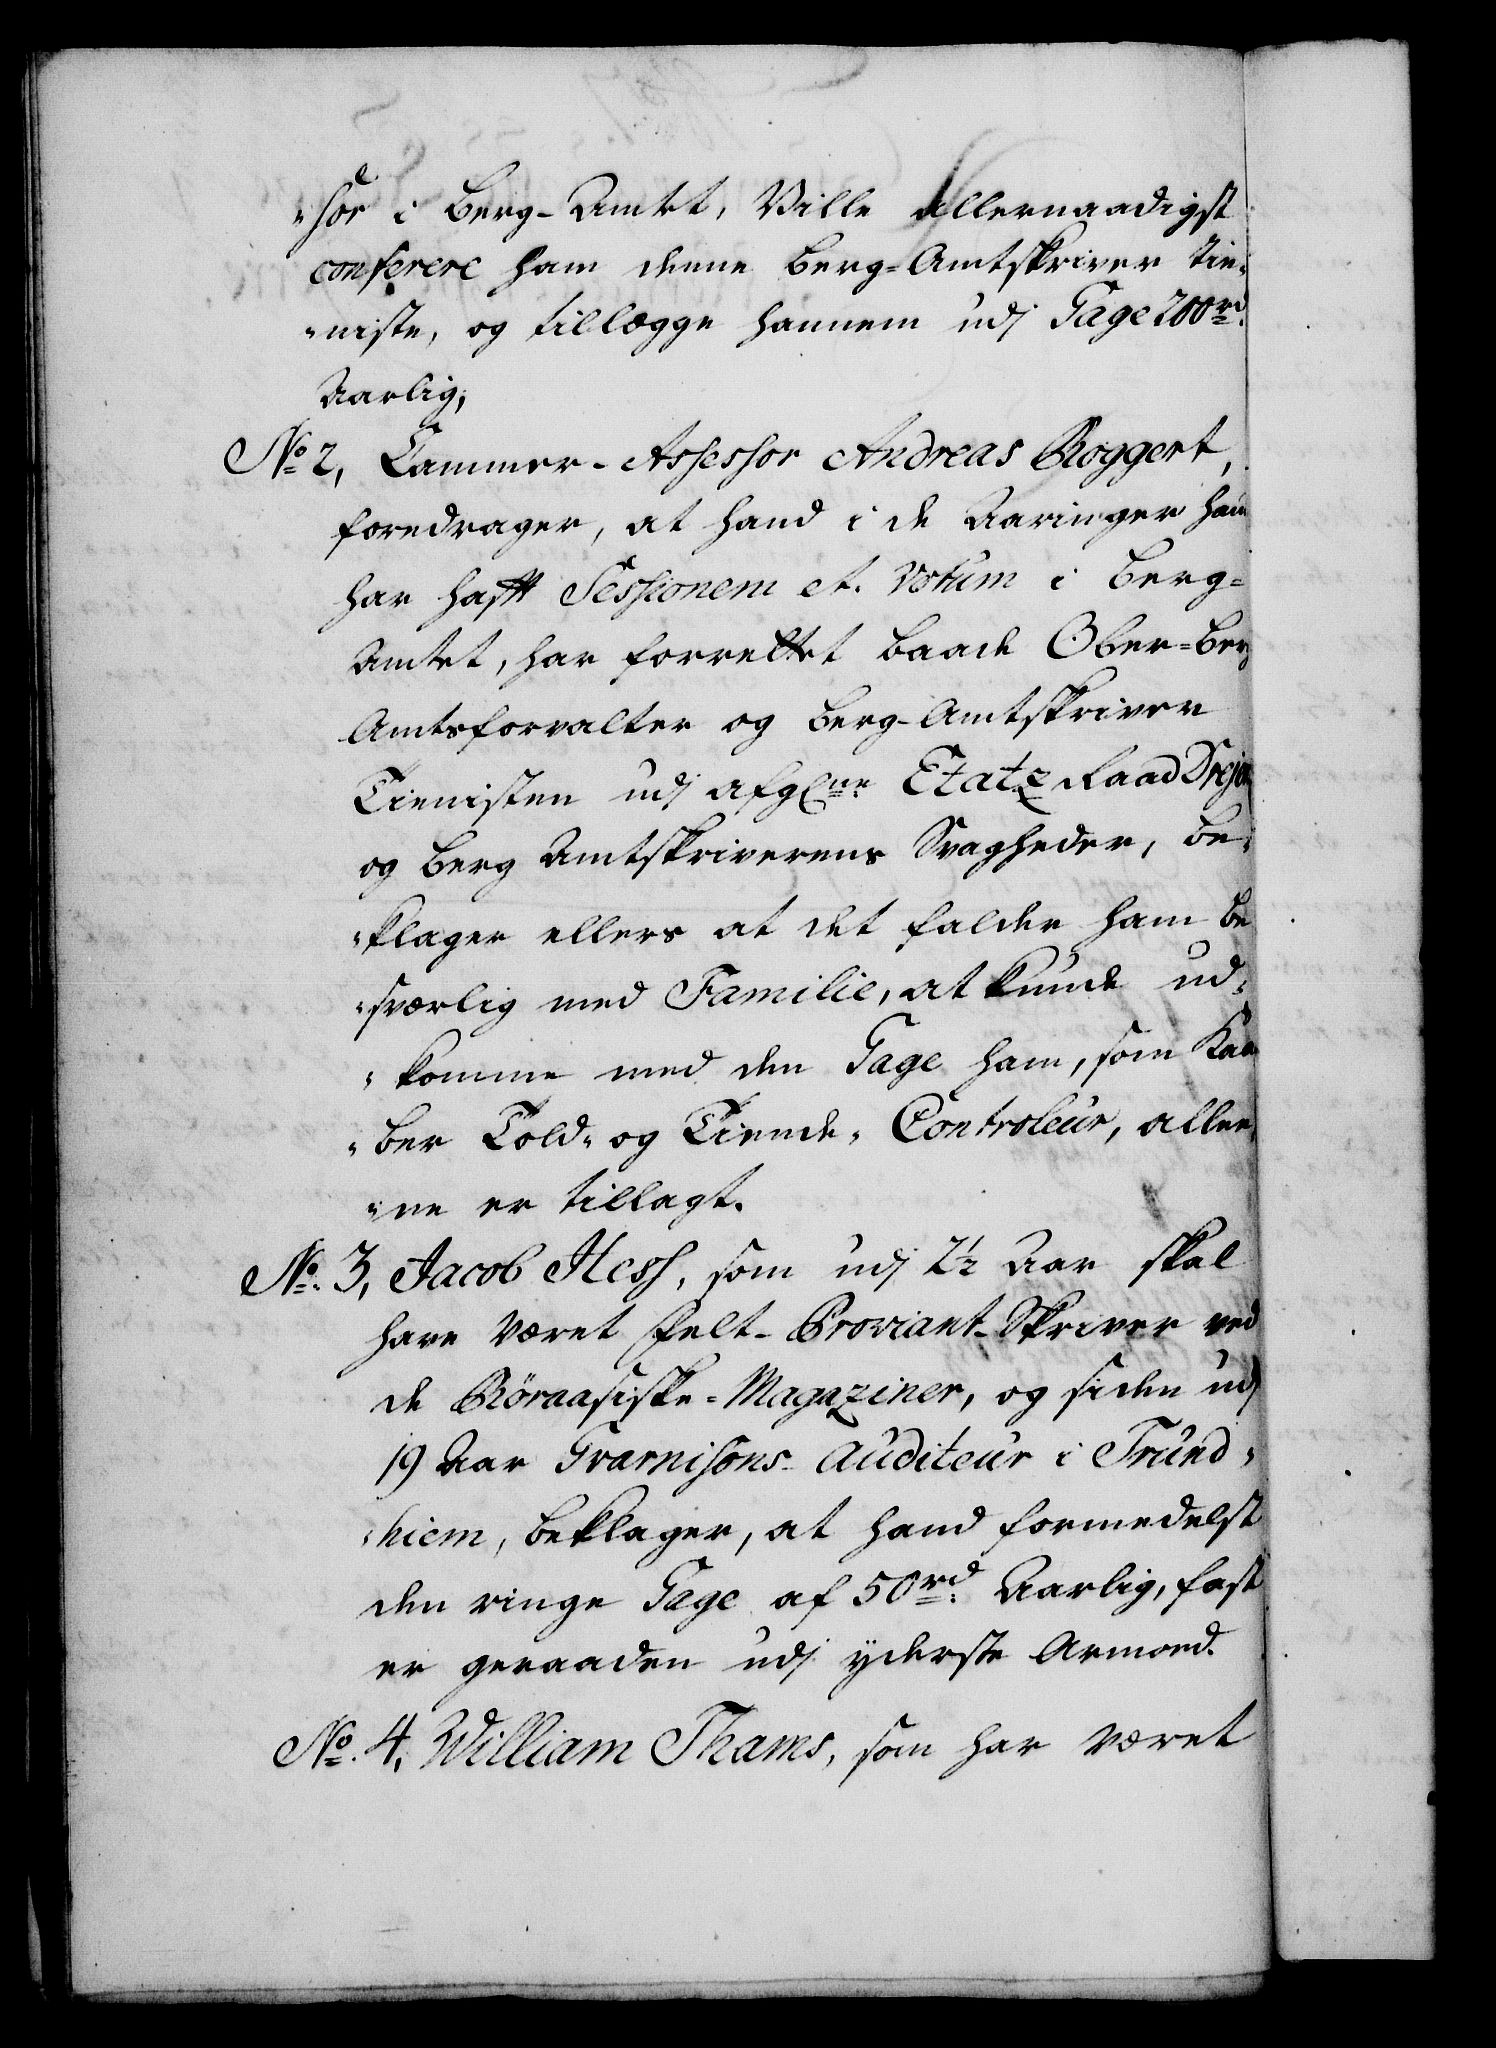 "sor i Berg-Amtet, Ville allernaadigst
conferere ham denne Berg-Amtskriver Tie-
"niste, og tillægge hannem udj Gage 200 rd.
Aarlig,
No. 2, Cammer-Assessor Andreas Roggert,
foredrager, at hand i de Aaringer hand
har hafft Sessionem et Votum i Berg-
Amtet, har forrettet baade Ober-Berg
Amtsforvalter og Berg-Amtskriver
Tienisten udj afgl. Etatz Raad
og Berg Amtskriverens Svagheder, be-
"klager ellers at det falder ham be
"sværlig med Familie, at kunde ud-
"komme med den Gage ham, som Kaa
"ber Told- og Tiende- Controleur, allee-
"ne er tillagt.
No. 3, Jacob Hess, som udj 2½ Aar skal
have været Felt-Proviant-Skriver ved
de Röraasiske-Magaziner, og siden udj
19 Aar Guarnisons-Auditeur i Trund-
"hiem, beklager, at hand formedelst
den ringe Gage af 50 rd. Aarlig, fast
er geraaden udj yderste Armoed.
No. 4, William Thams, som har været